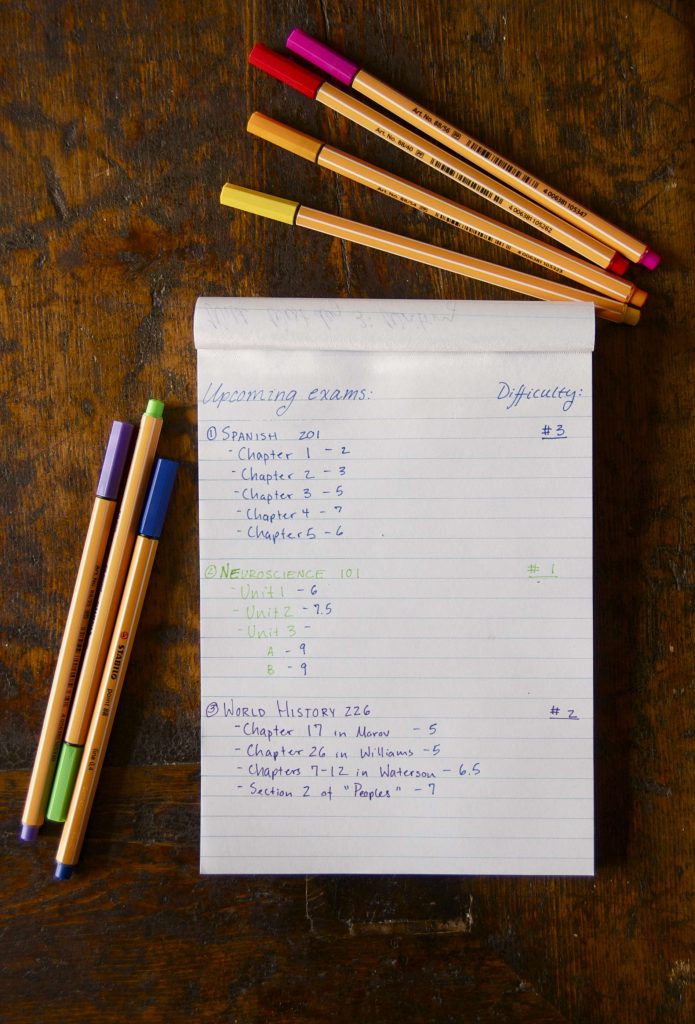 Art. No. 88/56
4 006381 105347
Art. No. 88/40
4 006381 105262
Art. No. 88/54
Upcoming exams: Difficulty:
① SPANISH 201 #3
- Chapter 1 - 2
- Chapter 2 - 3
- Chapter 3 - 5
- Chapter 4 - 7
- Chapter 5 - 6
② NEUROSCIENCE 101 # 1
- Unit 1 - 6
- Unit 2 - 7.5
- Unit 3 -
A - 9
B - 9
③ WORLD HISTORY 226 # 2
- Chapter 17 in Marov - 5
- Chapter 26 in Williams - 5
- Chapters 7-12 in Waterson - 6.5
- Section 2 of "Peoples" - 7
STABILO point 88